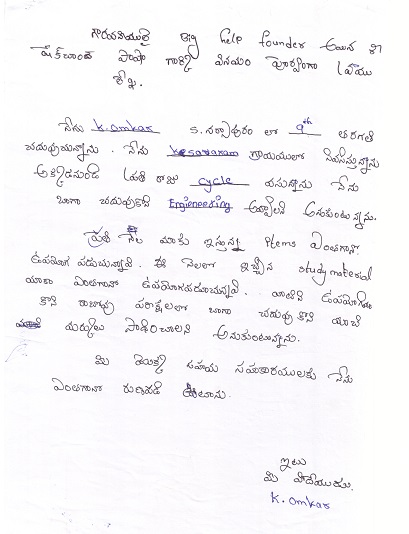 గౌరవనియులై Big help founder అయిన శ్రీ
షేక్‌చాంద్ పాషా గారికి వినయం పూర్వంగా వ్రాయు
లేఖ.
నేను K.omkar కె.నర్సాపురం లో 9th తరగతి
చదువుచున్నాను. నేను Kesavaram గ్రామములో నివసిస్తున్నాను
అక్కడనుండి ప్రతి రోజు cycle వస్తున్నాను నేను
బాగా చదువుకొని Engineeking అవ్వాలని అనుకుంటున్నాను.
ప్రతి నెల మాకు ఇస్తున్న Items ఎంతగానో
ఉపయోగ పడుచున్నావి. ఈ నెలలో ఇచ్చిన study material
మాకు ఎంతగానో ఉపయోగపడుచున్నవి. వాటిని ఉపయోగించు
కొని రాబోవు పరీక్షలలో బాగా చదువు కొని మంచి
మార్కులు సాధించాలని అనుకుంటున్నాను.
మి యొక్క సహాయ సహకారములకు నేను
ఎంతగానో రుణపడి ఉంటాను.
ఇట్లు
మి విదేయుడు.
K. omkar